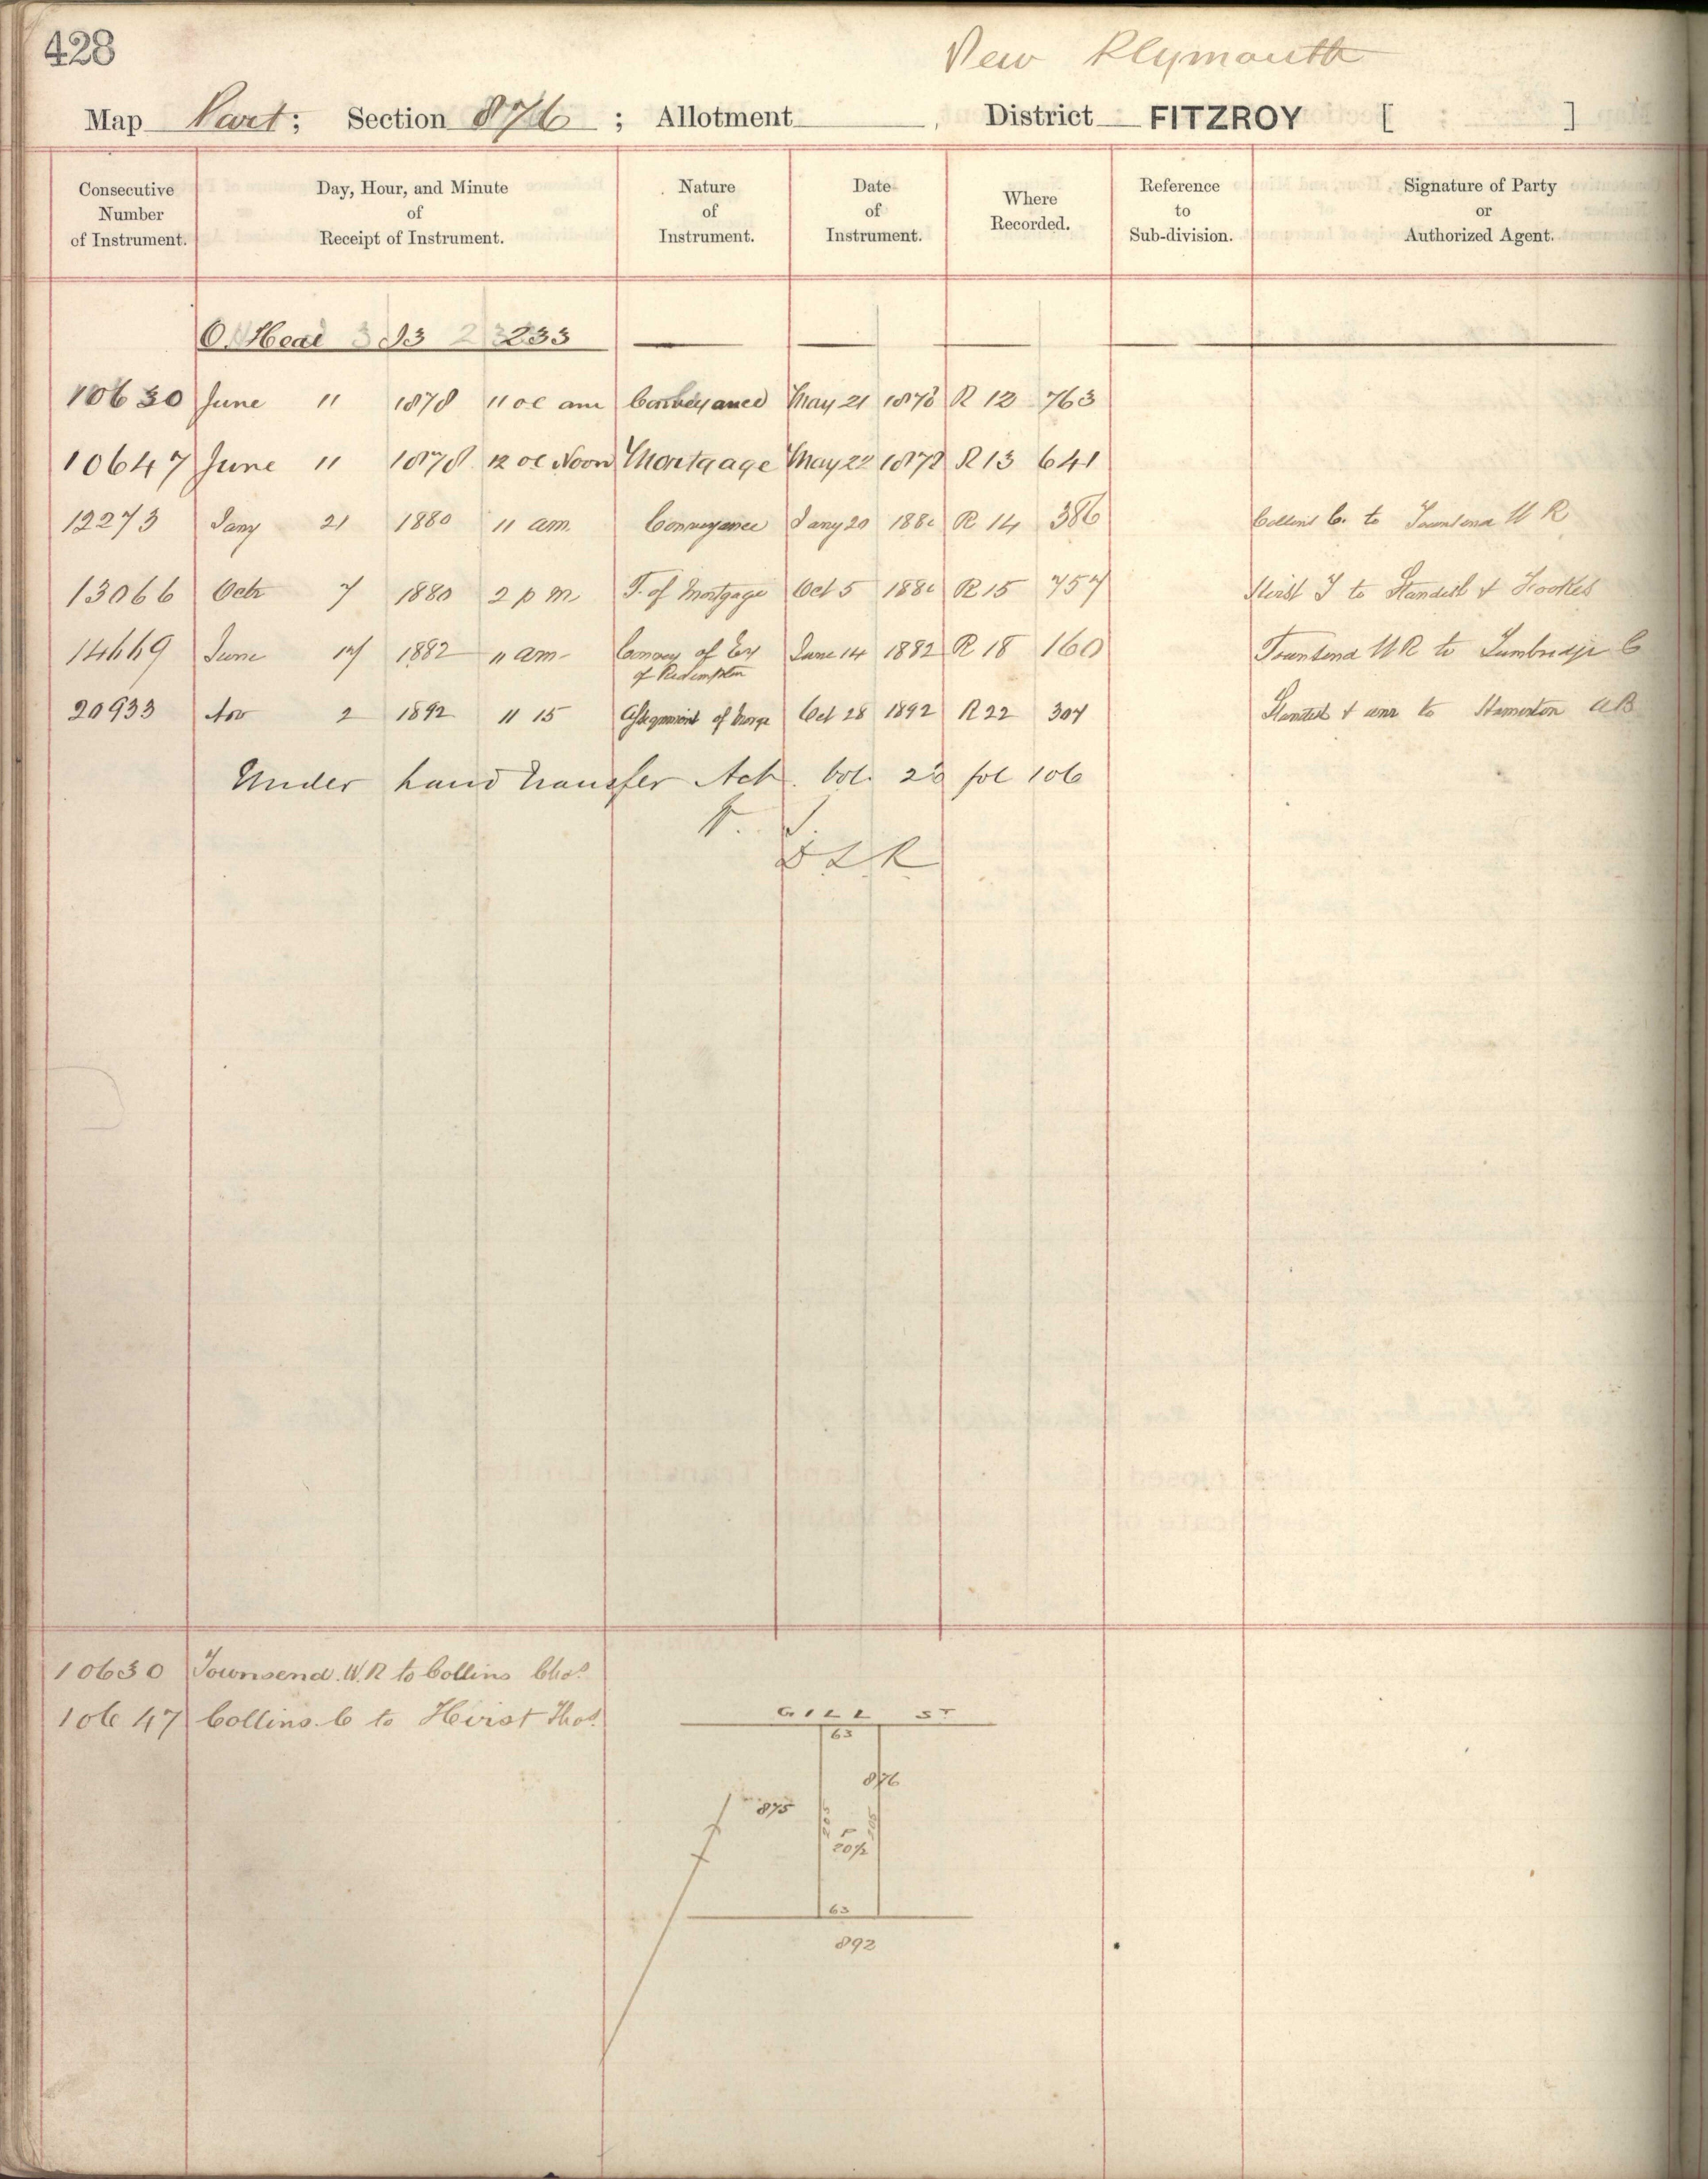 428
New Plymouth
Map Part; Section 876; Allotment , District FITZROY [ ]
Consecutive Number of Instrument. Day, Hour, and Minute of Receipt of Instrument. Nature of Instrument. Date of Instrument. Where Recorded. Reference to Sub-division. Signature of Party or Authorized Agent.
O. Head 233
10630 June 11 1878 11 oc am Conveyance May 21 1878 R 13 763
10647 June 11 1878 12 oc Noon Mortgage May 22 1878 R 13 641
12273 Jany 21 1880 11 am. Conveyance Jany 20 1880 R 14 386 Collins C. to Townsend W R
13066 Octr 7 1880 2 p m T. of Mortgage Oct 5 1880 R 15 757 Hirst T to Standish & Hookes
14669 June 17 1882 11 am Convey of Eq June 14 1882 R 18 160 Townsend W R to C
of Redemption
20933 Nov 2 1892 11 15 Assignment of Mortge Oct 28 1892 R 22 304 Standish & anr to Hamerton A B
Under Land Transfer Act. Vol. 23 fol 106
D L R
10630 Townsend. W. R to Collins Chas.
10647 Collins. C to Hirst Thos.
GILL ST
63
876
875
205 205
P
20½
63
892